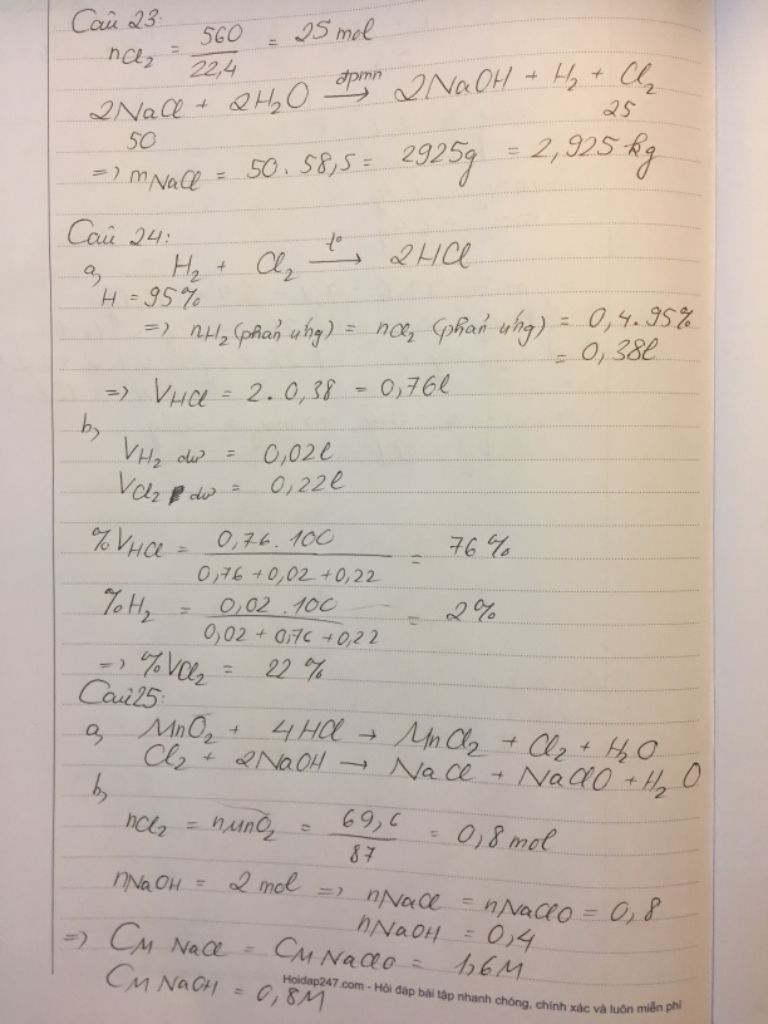 Câu 23:
nCl₂ = 560/22,4 = 25 mol
2NaCl + 2H₂O —đpmn→ 2NaOH + H₂ + Cl₂
50 25
=> mNaCl = 50 . 58,5 = 2925g = 2,925 kg
Câu 24:
a, H₂ + Cl₂ —t°→ 2HCl
H = 95%
=> nH₂ (phản ứng) = nCl₂ (phản ứng) = 0,4 . 95%
= 0,38l
=> VHCl = 2 . 0,38 = 0,76l
b,
VH₂ dư = 0,02l
VCl₂ dư = 0,22l
%VHCl = 0,76 . 100 / 0,76 + 0,02 + 0,22 = 76%
%H₂ = 0,02 . 100 / 0,02 + 0,76 + 0,22 = 2%
=> %VCl₂ = 22%
Câu 25:
a, MnO₂ + 4HCl → MnCl₂ + Cl₂ + H₂O
Cl₂ + 2NaOH → NaCl + NaClO + H₂O
b,
nCl₂ = nMnO₂ = 69,6/87 = 0,8 mol
nNaOH = 2 mol => nNaCl = nNaClO = 0,8
nNaOH = 0,4
=> CM NaCl = CM NaClO = 1,6M
CM NaOH = 0,8M
Hoidap247.com - Hỏi đáp bài tập nhanh chóng, chính xác và luôn miễn phí